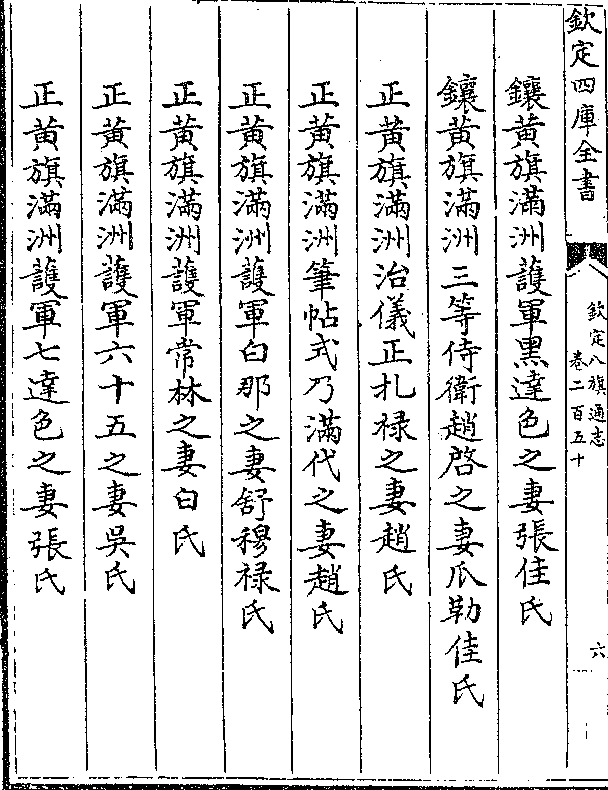 欽定四庫全書
欽定八旗通志
卷二百五十
六
鑲黄旗滿洲護軍黑達色之妻張佳氏
鑲黄旗滿洲三等侍衛趙啓之妻瓜勒佳氏
正黄旗滿洲治儀正扎禄之妻趙氏
正黄旗滿洲筆帖式乃滿代之妻趙氏
正黄旗滿洲護軍白那之妻舒穆禄氏
正黄旗滿洲護軍常林之妻白氏
正黄旗滿洲護軍六十五之妻吳氏
正黄旗滿洲護軍七達色之妻張氏